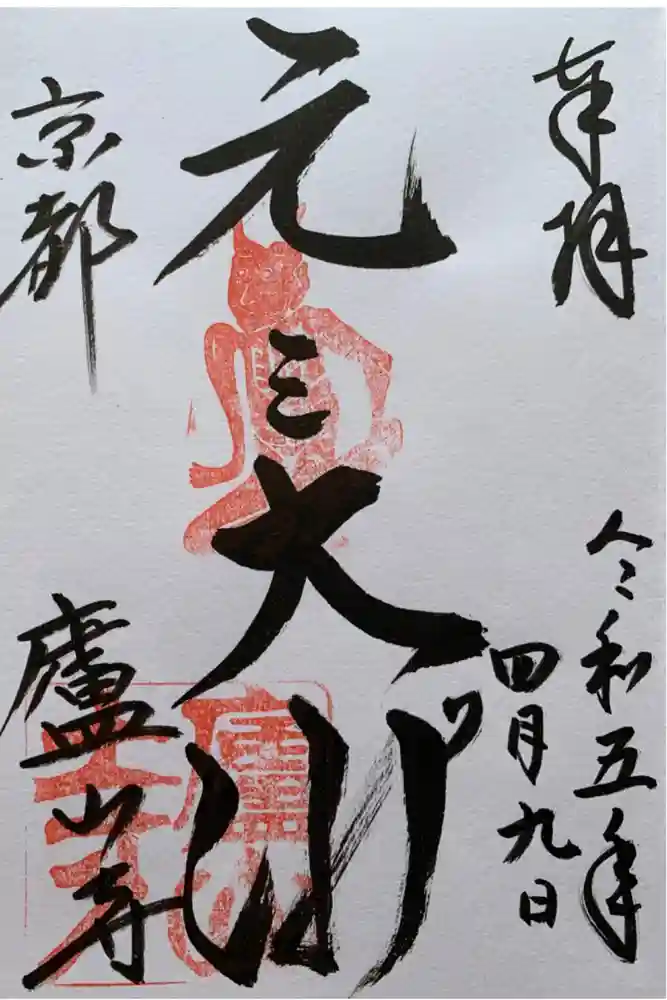 奉拝
令和五年
四月九日
元三大師
京都
廬山寺